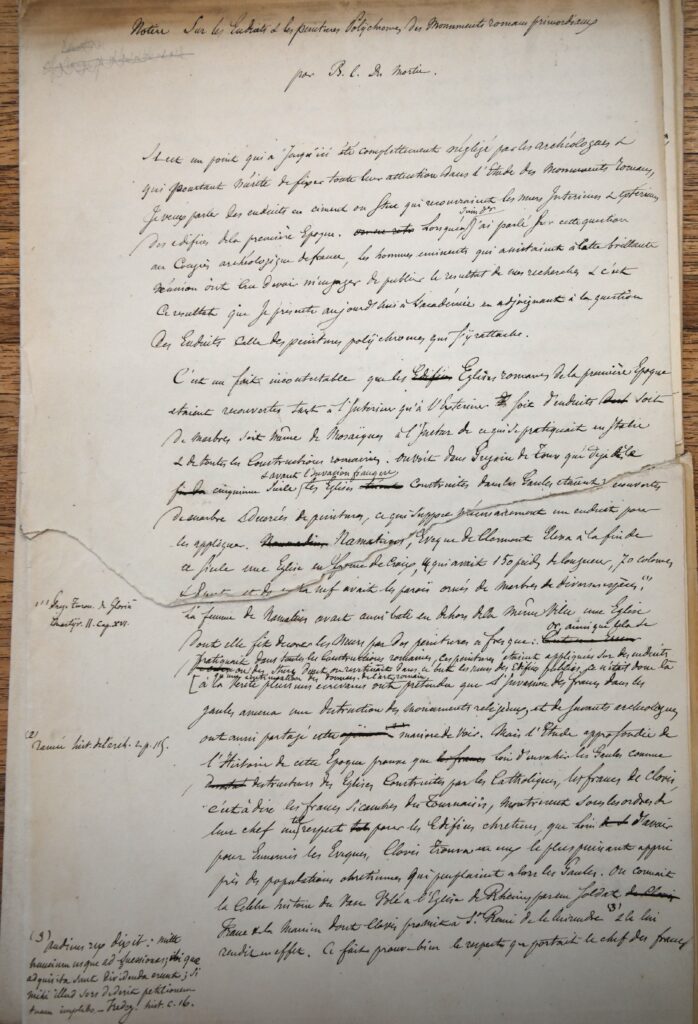 Notice Sur les Enduits & les peintures Polychromes Des Monuments romans primordiaux
par B. C. Du Mortier.
Il est un point qui a jusqu'ici été complettement négligé par les archéologues &
qui pourtant mérite de fixer toute leur attention dans l'Etude des Monuments romans,
Je veux parler des enduits en ciment ou stuc qui recouvraient les murs Interieurs & Exterieurs
des edifices de la première Epoque. Lorsque j'ai parlé sur cette question
au Congrès archéologique de france, les hommes eminents qui assistaient à cette brillante
réunion ont cru devoir m'engager de publier le resultat de mes recherches & c'est
Ce resultat que Je présente aujourd'hui à l'académie en adjoignant à la question
des Enduits Celle des peintures polychromes qui s'y rattache.
C'est un fait incontestable que les Edifices Eglises romanes de la première Epoque
etaient recouvertes tant à l'Interieur qu'à l'Exterieur soit d'enduits soit
de marbres soit même de Mosaïques à l'Instar de ce qui se pratiquait en Italie
& de toutes les Constructions romaines. On voit dans Gregoire de Tours que déjà à la
cinquième Siècle & avant l'invasion franque les Eglises Construites dans les Gaules etaient couvertes
de marbre & décorées de peintures, ce qui suppose nécessairement un enduit pour
les appliquer. Namatius, Evêque de Clermont Eleva à la fin de
ce siecle une Eglise en forme de Croix, qui avait 150 pieds de longueur, 70 colonnes
et la nef avait les parois ornés de marbres de diverses espèces. (1)
La femme de Namatius avait aussi bati en dehors de la même Ville une Eglise
dont elle fit decorer les Murs par des peintures à fresque. Or ainsi que cela se
pratiquait dans toutes les Constructions romaines, ces peintures étaient appliquées sur des enduits
ou des stucs dont on revêtait les murs des Edifices publics, ce n'était donc là
qu'une continuation des données de l'art romain.
à la vérité plusieurs ecrivains ont prétendu que l'Invasion des francs dans les
gaules amena une destruction des monuments religieux, et de savants archeologues
ont aussi partagé cette manière de Voir. (2) Mais l'Etude approfondie de
l'Histoire de cette Epoque prouve que loin d'envahir les Gaules comme
destructeurs des Eglises Construites par les Catholiques, les francs de Clovis,
c'est à dire les francs Sicambres du Tournaisis, montrerent sous les ordres de
leur chef un respect pour les Edifices chretiens, que loin d'avoir
pour Ennemis les Evêques, Clovis trouva en eux le plus puissant appui
près des populations chretiennes qui peuplaient alors les Gaules. On connait
la Celèbre histoire du Vase Volé à l'Eglise de Rheims par un Soldat
Franc & la Manière dont Clovis promit à St. Remi de le lui rendre (3) & le lui
rendit en effet. Ce fait prouve bien le respect que portait le chef des francs
(1) Greg. Turon. de Gloriâ
Martyr. II. Cap. XVI.
(2) ramée hist. de l'arch. 2. p. 115.
(3) Audiens rex dixit: mitte
nuncium usque ad Suessionas; ibi quæ
adquisita sunt dividenda erunt; si
mihi illud sors dederit petitionem
tuam implebo. – Fredeg. hist. c. 16.